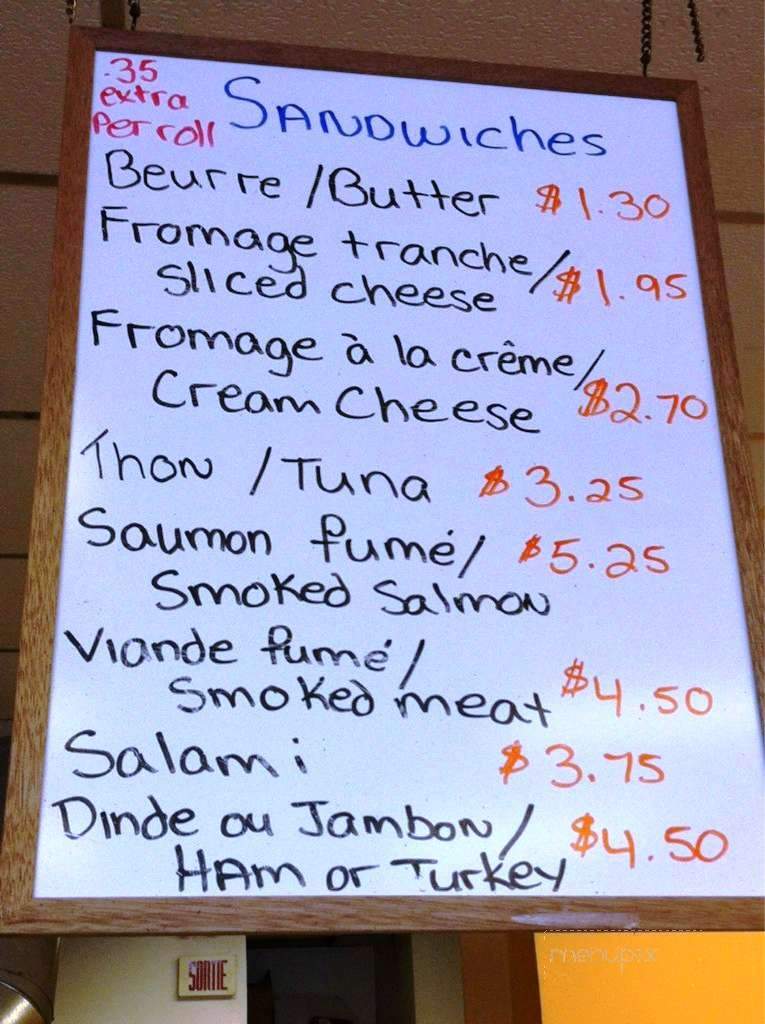 .35
extra
Per roll
SANDWiches
Beurre / Butter $1.30
Fromage tranche/
Sliced cheese $1.95
Fromage à la crême/
Cream Cheese $2.70
Thon / Tuna $3.25
Saumon fumé/ $5.25
Smoked Salmon
Viande fumé/
Smoked meat $4.50
Salami $3.75
Dinde ou Jambon/ $4.50
HAm or Turkey
SORTIE
menupix